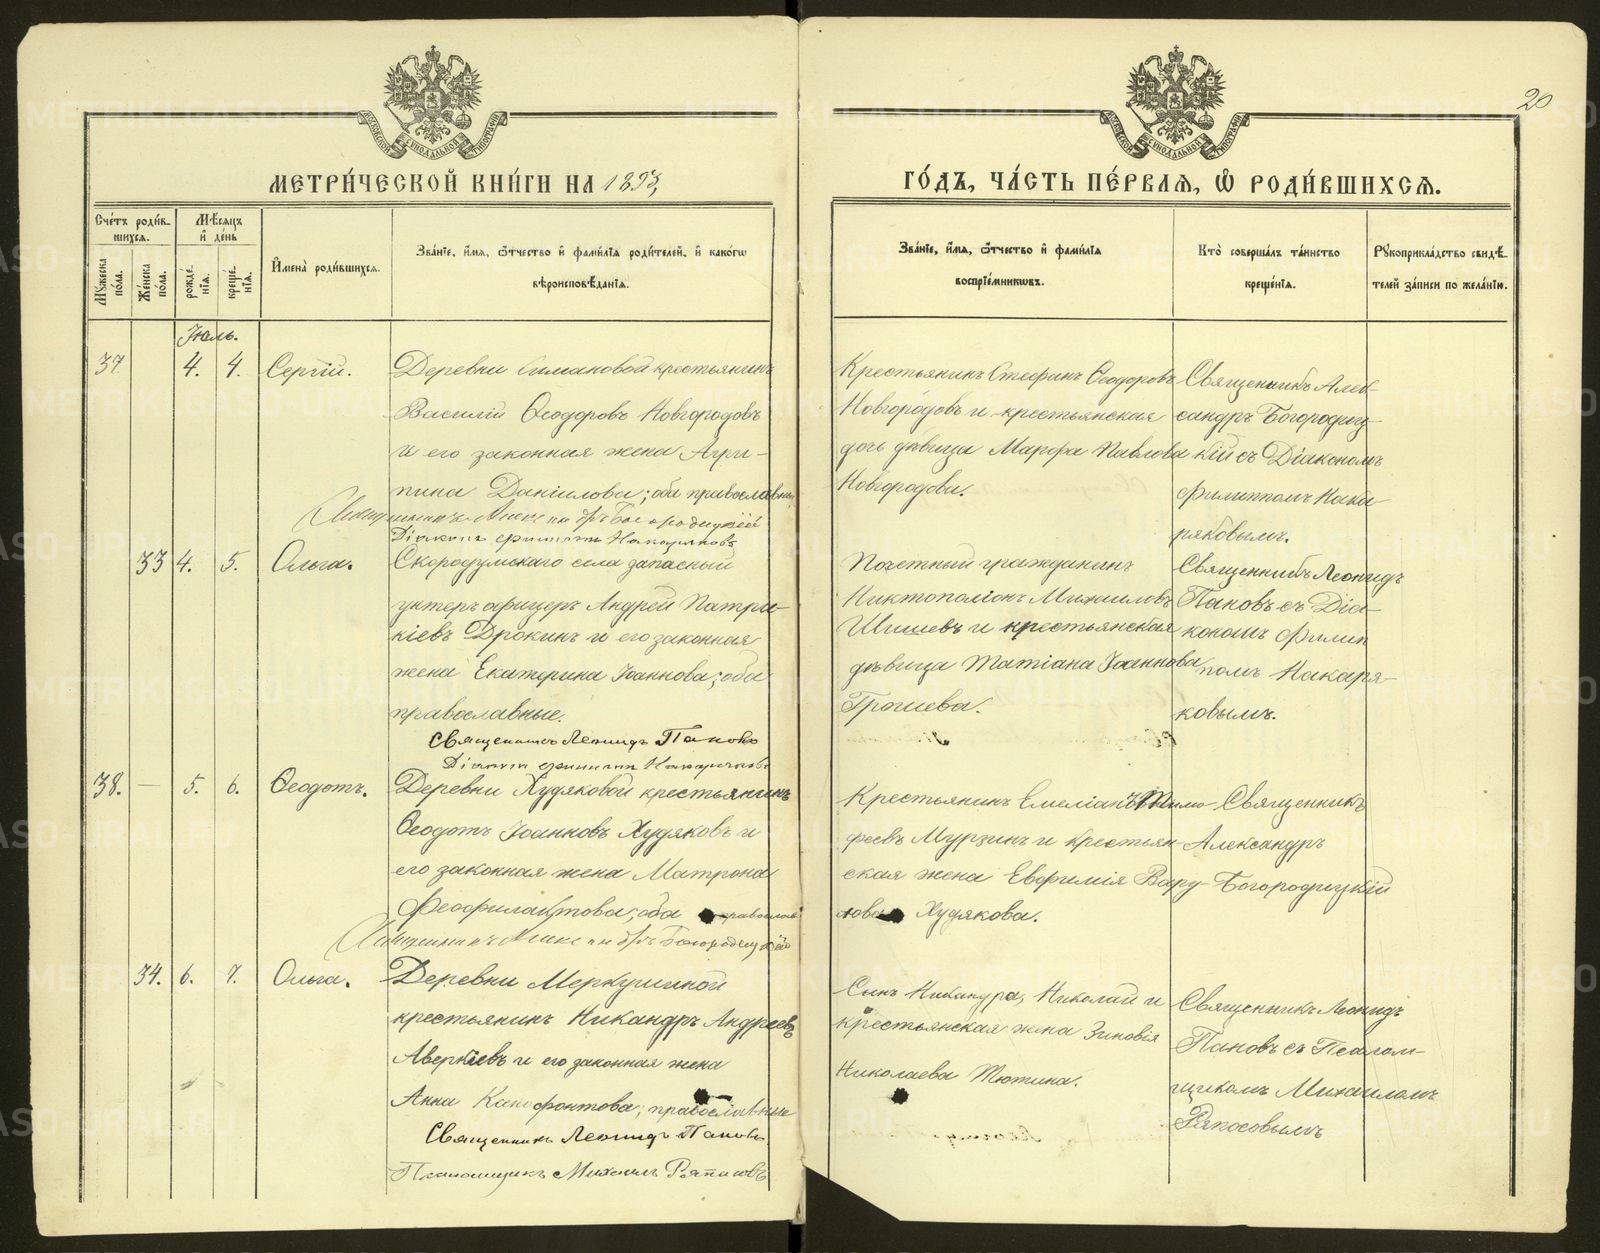 20
МЕТРИ́ЧЕСКОЙ КНИ́ГИ НА 1893,
ГО́ДЪ, ЧА́СТЬ ПЕ́РВАЯ, Ѡ҆ РОДИ́ВШИХСЯ.
Сче́тъ роди́в-
шихся.
Мѣ́сяцъ
и҆ де́нь
Му́жеска по́ла.
Же́нска по́ла.
рожде́-
нїя.
креще́-
нїя.
И҆мена̀ роди́вшихся.
Зва́нїе, и҆́мя, ѻ҆́тчество и҆ фами́лїя роди́телей, и҆ како́гѡ
вѣроисповѣ́данїя.
Зва́нїе, и҆́мя, ѻ҆́тчество и҆ фами́лїя
воспрїе́мникѡвъ.
Кто̀ соверша́лъ та́инство
креще́нїя.
Рꙋкоприкла́дство свидѣ́-
телей за́писи по жела́нїю.
Іюль.
37
4.
4.
Сергій.
Деревни Симановой крестьянинъ
Василій Ѳеодоровъ Новгородовъ
и его законная жена Агри-
пина Даніилова; оба православны
Священникъ Александръ Богородицкій
Діаконъ Филиппъ Накаряковъ
Крестьянинъ Стефанъ Ѳеодоровъ
Новгородовъ и крестьянская
дочь дѣвица Марѳа Павлова
Новгородова.
Священникъ Алек-
сандръ Богородиц-
кій съ Діакономъ
Филиппомъ Нака-
ряковымъ.
33
4.
5.
Ольга.
Скородумскаго села запасный
унтеръ офицеръ Андрей Патри-
кіевъ Дрокинъ и его законная
жена Екатерина Іоаннова; оба
православные.
Священникъ Леонидъ Пановъ
Діаконъ Филиппъ Накаряковъ
Почетный гражданинъ
Никтополіонъ Михаиловъ
Шишевъ и крестьянская
дѣвица Татіана Іоаннова
Грошева.
Священникъ Леонидъ
Пановъ съ Діа-
кономъ Филип
помъ Накаря-
ковымъ.
38.
5.
6.
Ѳеодотъ.
Деревни Худяковой крестьянинъ
Ѳеодотъ Іоанновъ Худяковъ и
его законная жена Матрона
Феофилактова; оба православ
Священникъ Александръ Богородицкій
Крестьянинъ Емеліанъ Тимо-
феевъ Мурзинъ и крестьян-
ская жена Евфимія Вару-
Худякова.
Священникъ
Александръ
Богородицкій
34.
6.
7.
Ольга.
Деревни Меркушиной
крестьянинъ Никандръ Андреевъ
Аверкіевъ и его законная жена
Анна Ксенофонтова; православные
Священникъ Леонидъ Пановъ
Псаломщикъ Михаилъ Ряпосовъ
Сынъ Никанура, Николай и
крестьянская жена Зиновія
Николаева Тютина.
Священникъ Леонидъ
Пановъ съ Псалом-
щикомъ Михаиломъ
Ряпосовымъ